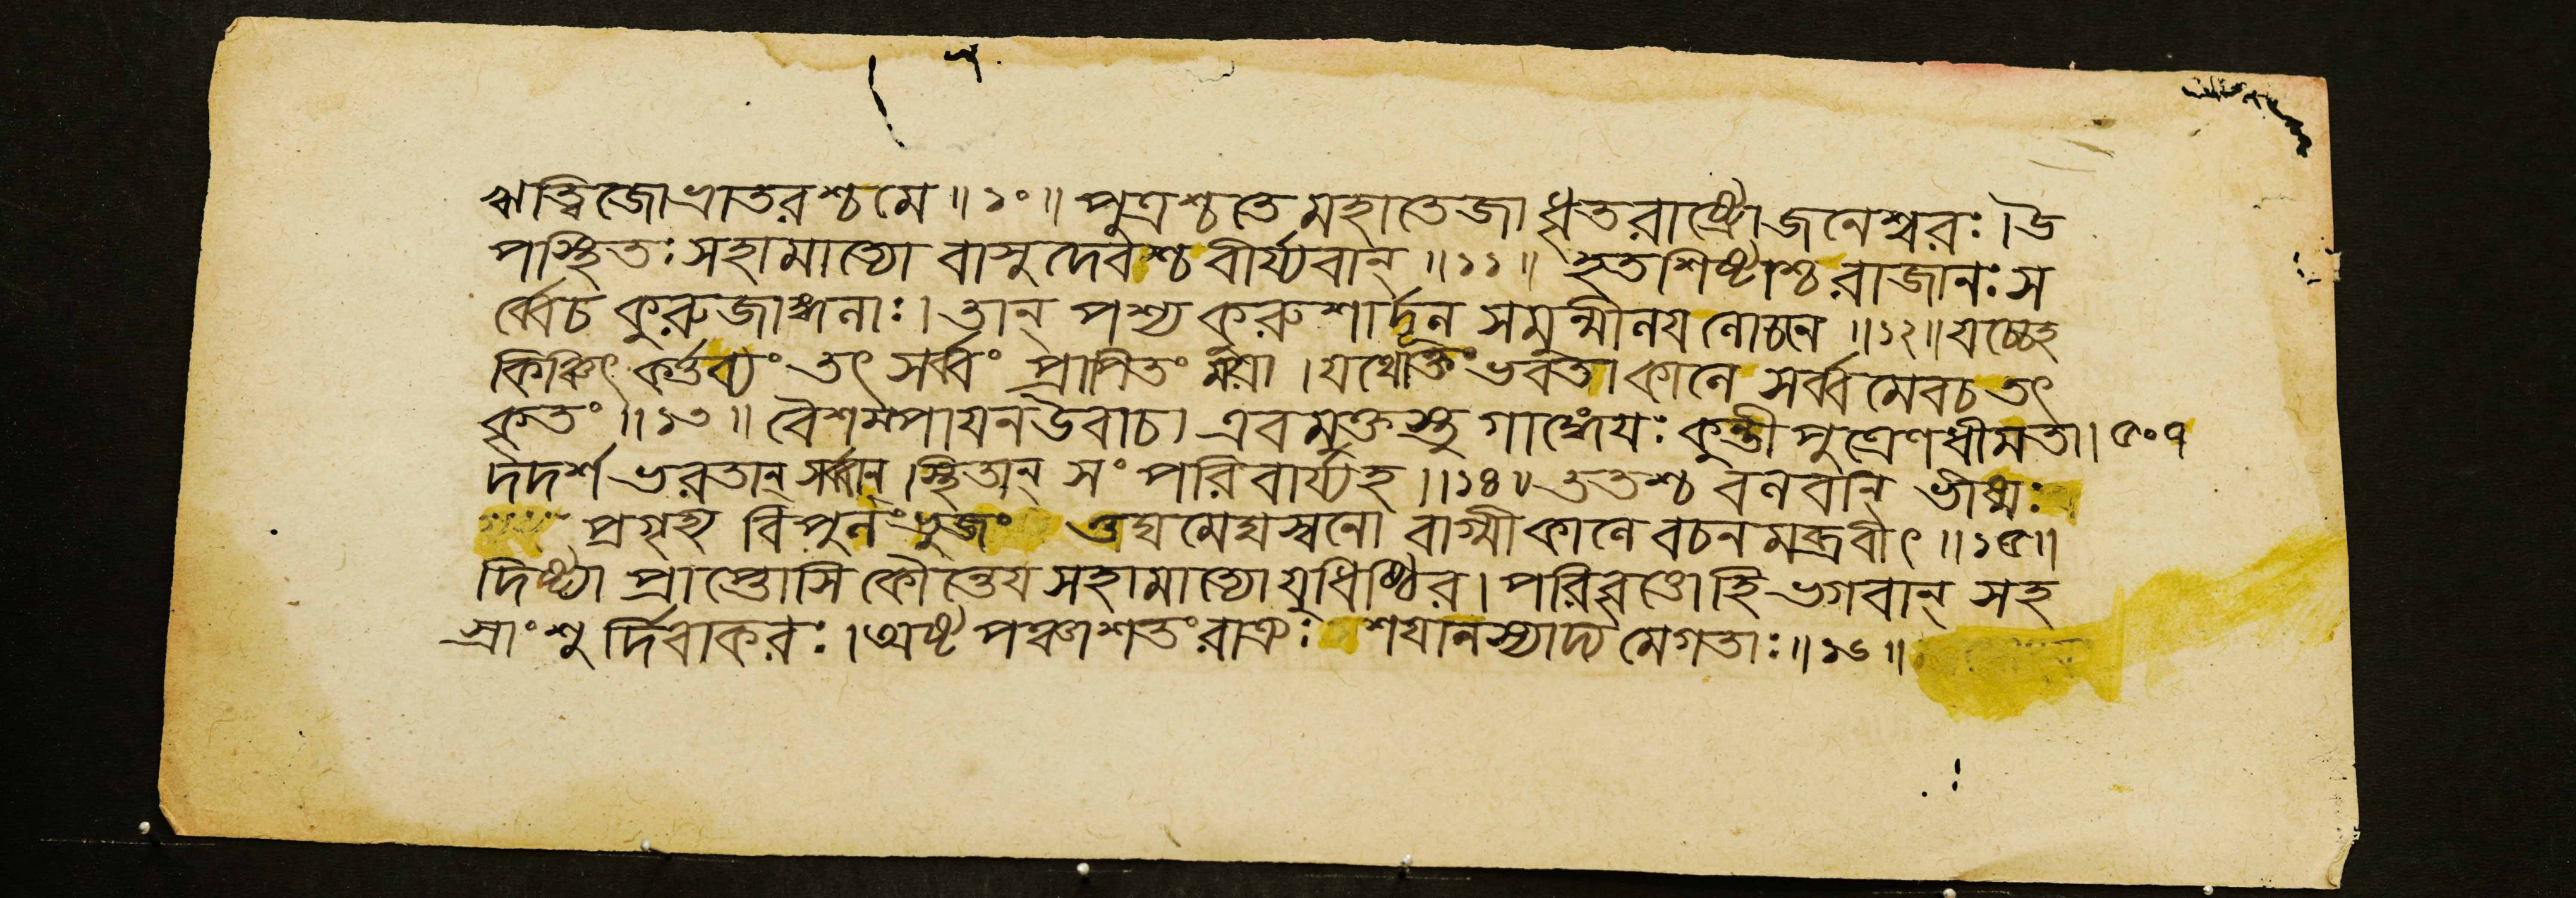 ঋত্বিজো ভ্রাতরশ্চ মে ॥ ১০ ॥ পুত্রশ্চ তে মহাতেজা ধৃতরাষ্ট্রো জনেশ্বরঃ । উ
পস্থিতঃ সহামাত্যো বাসুদেবশ্চ বীর্য্যবান্ ॥ ১১ ॥ হতশিষ্টাশ্চ রাজানঃ স
র্ব্বে চ কুরুজাঙ্গলাঃ । তান্ পশ্য কুরুশার্দূল সমুন্মীলয লোচনে ॥ ১২ ॥ যচ্চেহ
কিঞ্চিৎ কর্ত্তব্যং তৎ সর্ব্বং প্রাপিতং ময়া । যথোক্তং ভবতা কালে সর্ব্বমেব চ তৎ
কৃতং ॥ ১৩ ॥ বৈশম্পাযন উবাচ । এবমুক্তস্তু গাঙ্গেযঃ কুন্তীপুত্রেণ ধীমতা । ৫০৭
দদর্শ ভরতান্ সর্ব্বান্ । স্থিতান্ সংপরিবার্য্য হ ॥ ১৪ ॥ ততশ্চ বলবান্ ভীষ্মঃ
প্রগৃহ্য বিপুলং ভুজং ওঘমেঘস্বনো বাগ্মী কালে বচনমব্রবীৎ ॥ ১৫ ॥
দিষ্ট্যা প্রাপ্তোসি কৌন্তেয সহামাত্যো যুধিষ্ঠির । পরিবৃত্তো হি ভগবান্ সহ
স্রাংশুর্দিবাকরঃ । অষ্টপঞ্চাশতং রাত্রঃ শযানস্যাদ্য মে গতাঃ ॥ ১৬ ॥